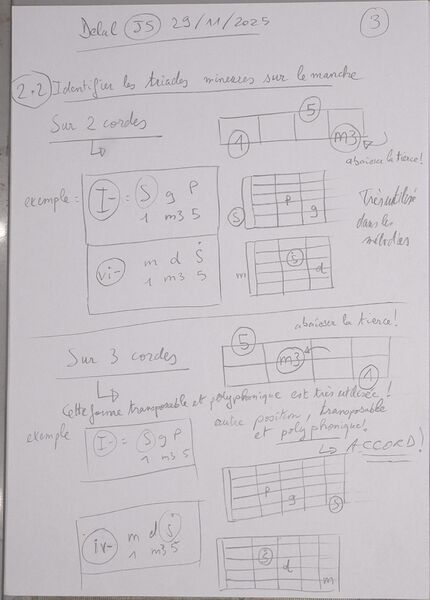 Delal J5 29/11/2025 3
2.2 Identifier les triades mineures sur le manche
Sur 2 cordes
5
1 m3
abaisser la tierce!
exemple = I- = S g P
1 m3 5
P
S g
Très utilisé
dans les
mélodies
vi- m d Ṡ
1 m3 5
S
m d
abaisser la tierce!
Sur 3 cordes
5
m3
1
Cette forme transposable et polyphonique est très utilisée!
autre position, transposable
et polyphonique!
ACCORD!
exemple I- = S g P
1 m3 5
P g
S
iv- m d Ṡ
1 m3 5
d
m